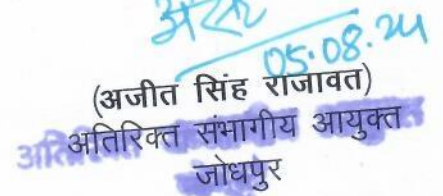 05.08.24
(अजीत सिंह राजावत)
अतिरिक्त संभागीय आयुक्त
जोधपुर